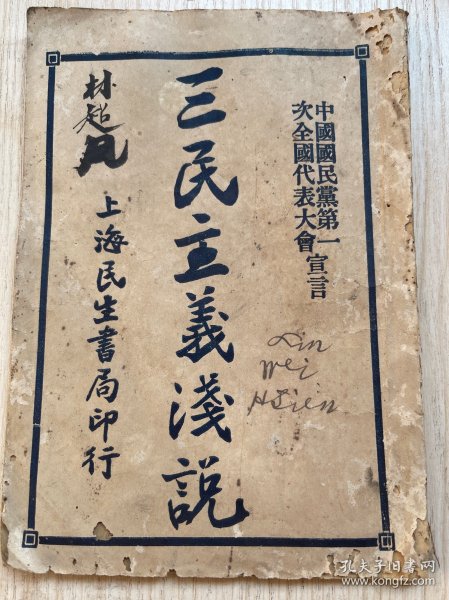 中國國民黨第一
次全國代表大會宣言
三民主義淺說
上海民生書局印行
林超凡
Lin
Wei
Hsien
孔夫子旧书网
www.kongfz.com